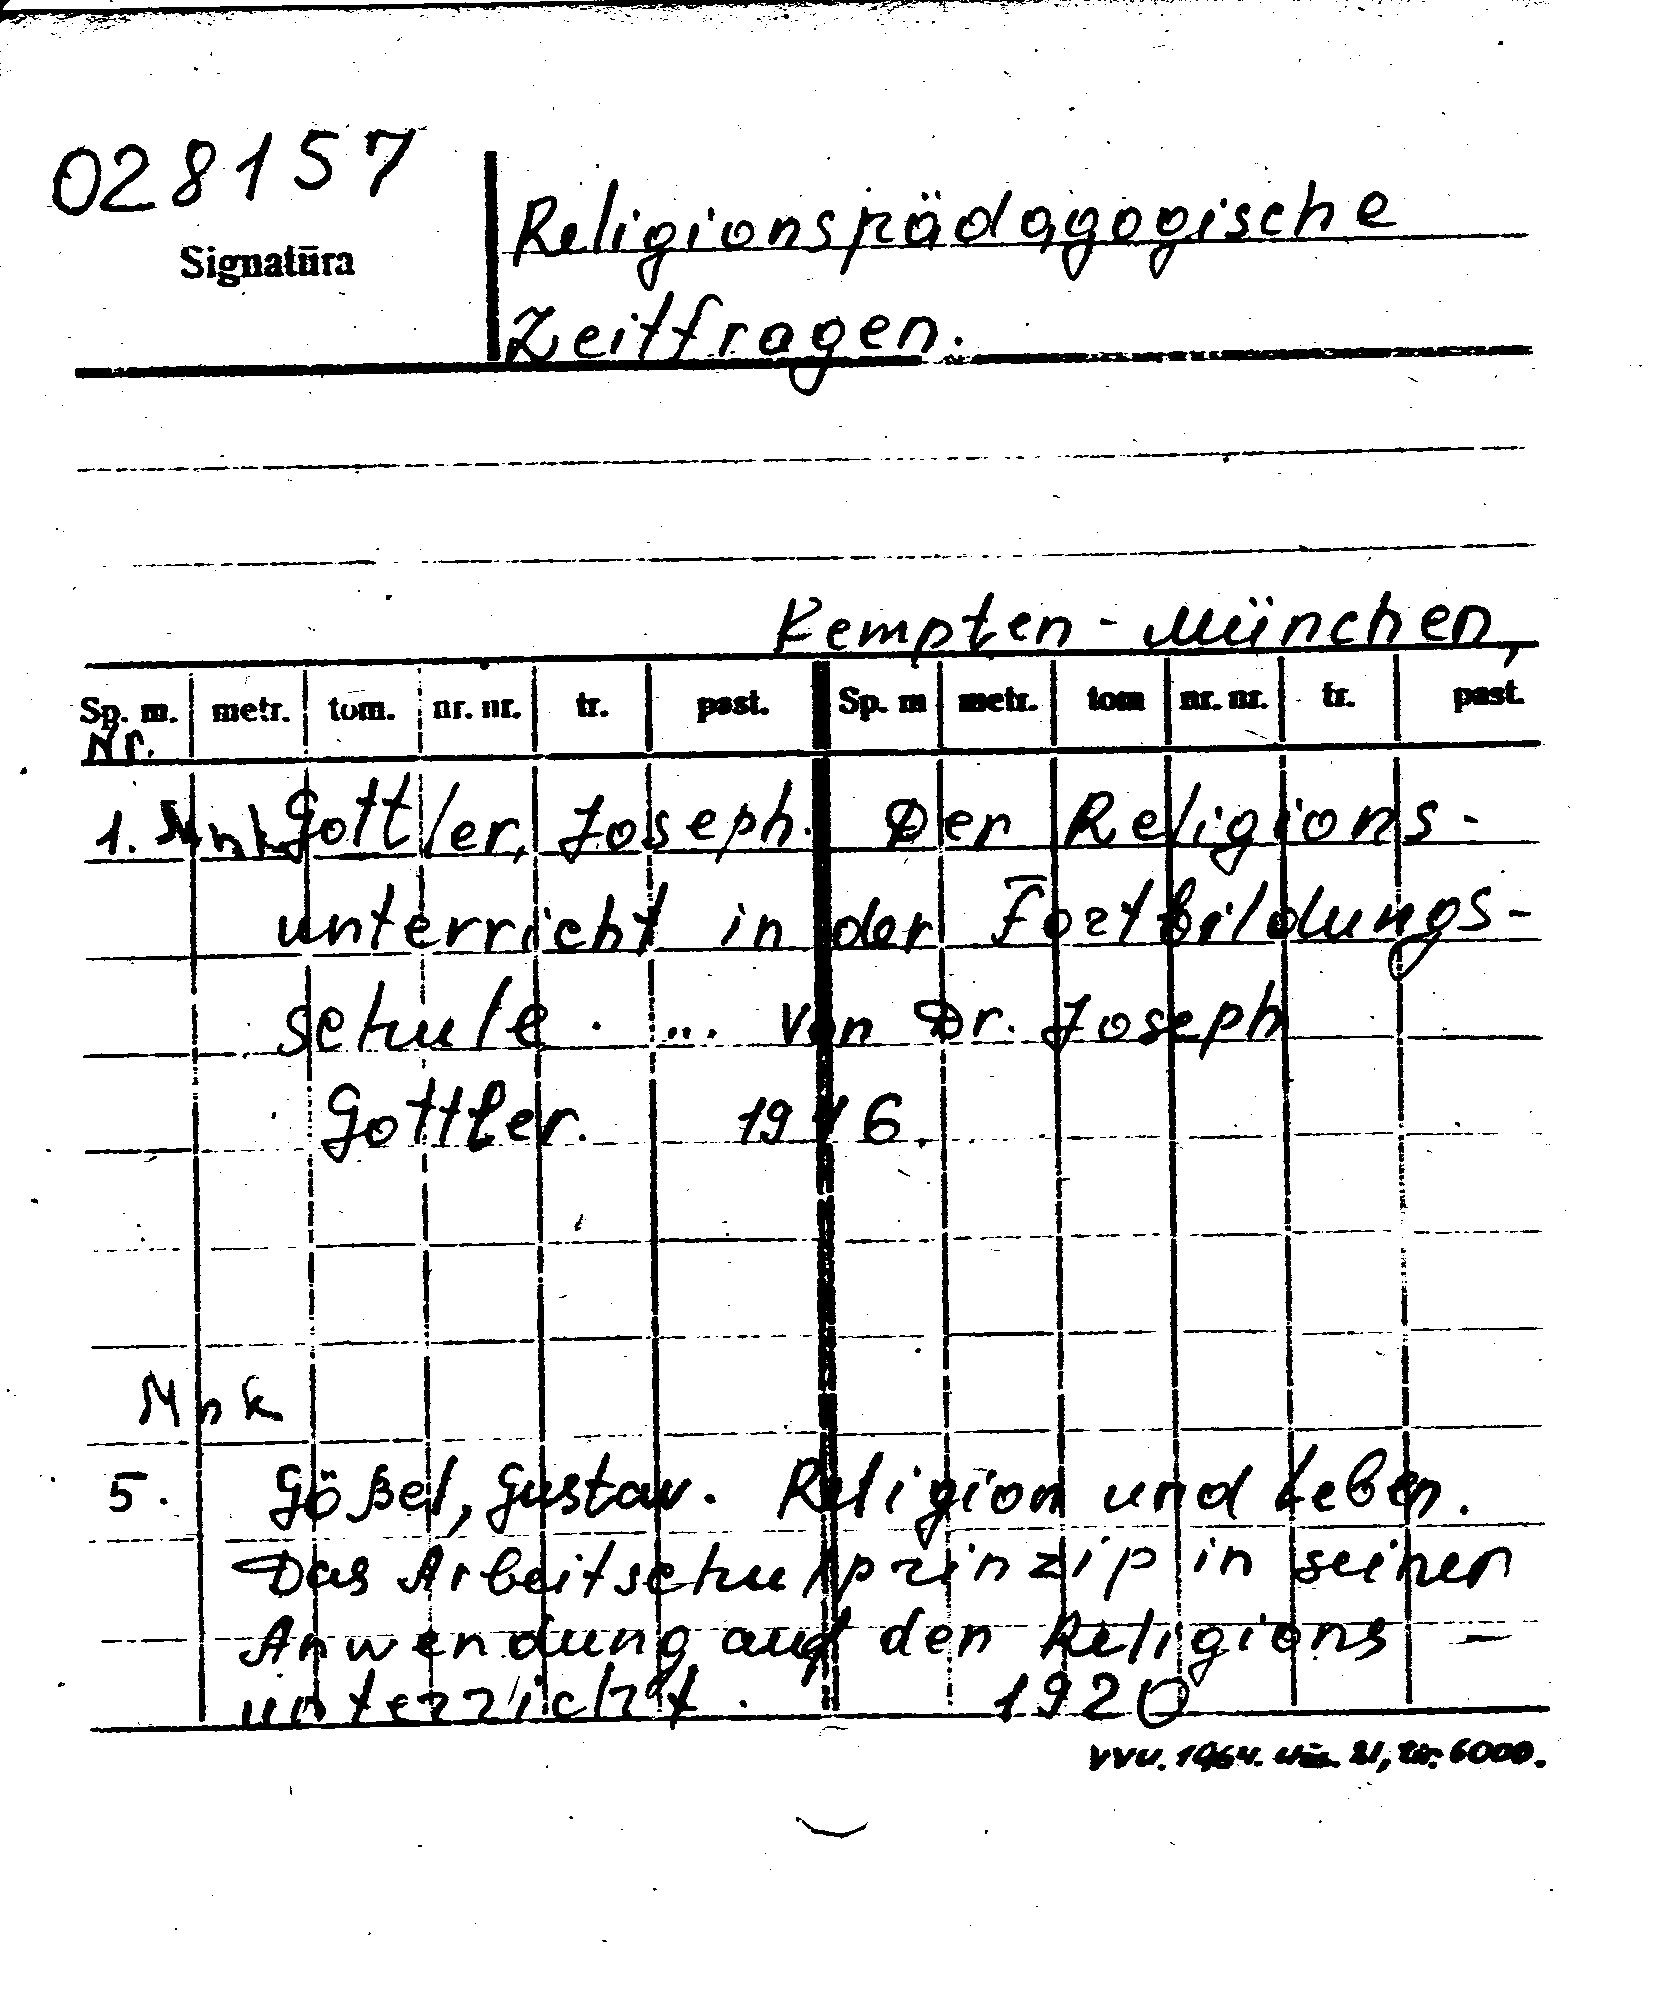 028157
Signatūra
Religionspädagogische
Zeitfragen.
Kempten - München,
Sp. m. metr. tom. nr. nr. tr. past. Sp. m metr. tom nr. nr. tr. past.
Nr.
1. Mnk Gottler, Joseph. Der Religions-
unterricht in der Fortbildungs-
schule. ... von Dr. Joseph
Gottler. 1916.
Mnk
5. Gößel, Gustav. Religion und Leben.
Das Arbeitschulprinzip in seiner
Anwendung auf den Religions-
unterricht. 1920
VVU. 1964. 6000.